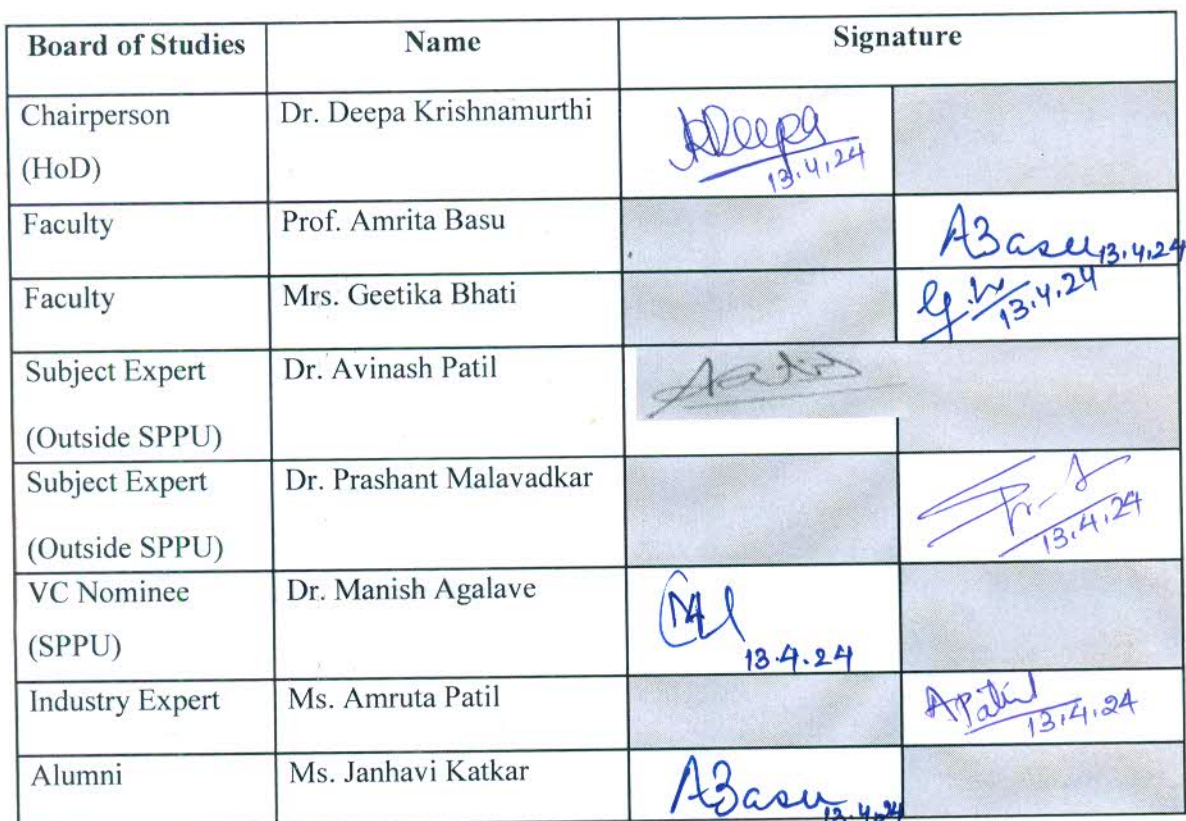 Board of Studies Name Signature
Chairperson Dr. Deepa Krishnamurthi KDeepa
(HoD) 13.4.24
Faculty Prof. Amrita Basu ABasu 13.4.24
Faculty Mrs. Geetika Bhati
13.4.24
Subject Expert Dr. Avinash Patil
(Outside SPPU)
Subject Expert Dr. Prashant Malavadkar
(Outside SPPU) 13.4.24
VC Nominee Dr. Manish Agalave
(SPPU) 13.4.24
Industry Expert Ms. Amruta Patil APatil
13.4.24
Alumni Ms. Janhavi Katkar ABasu 13.4.24